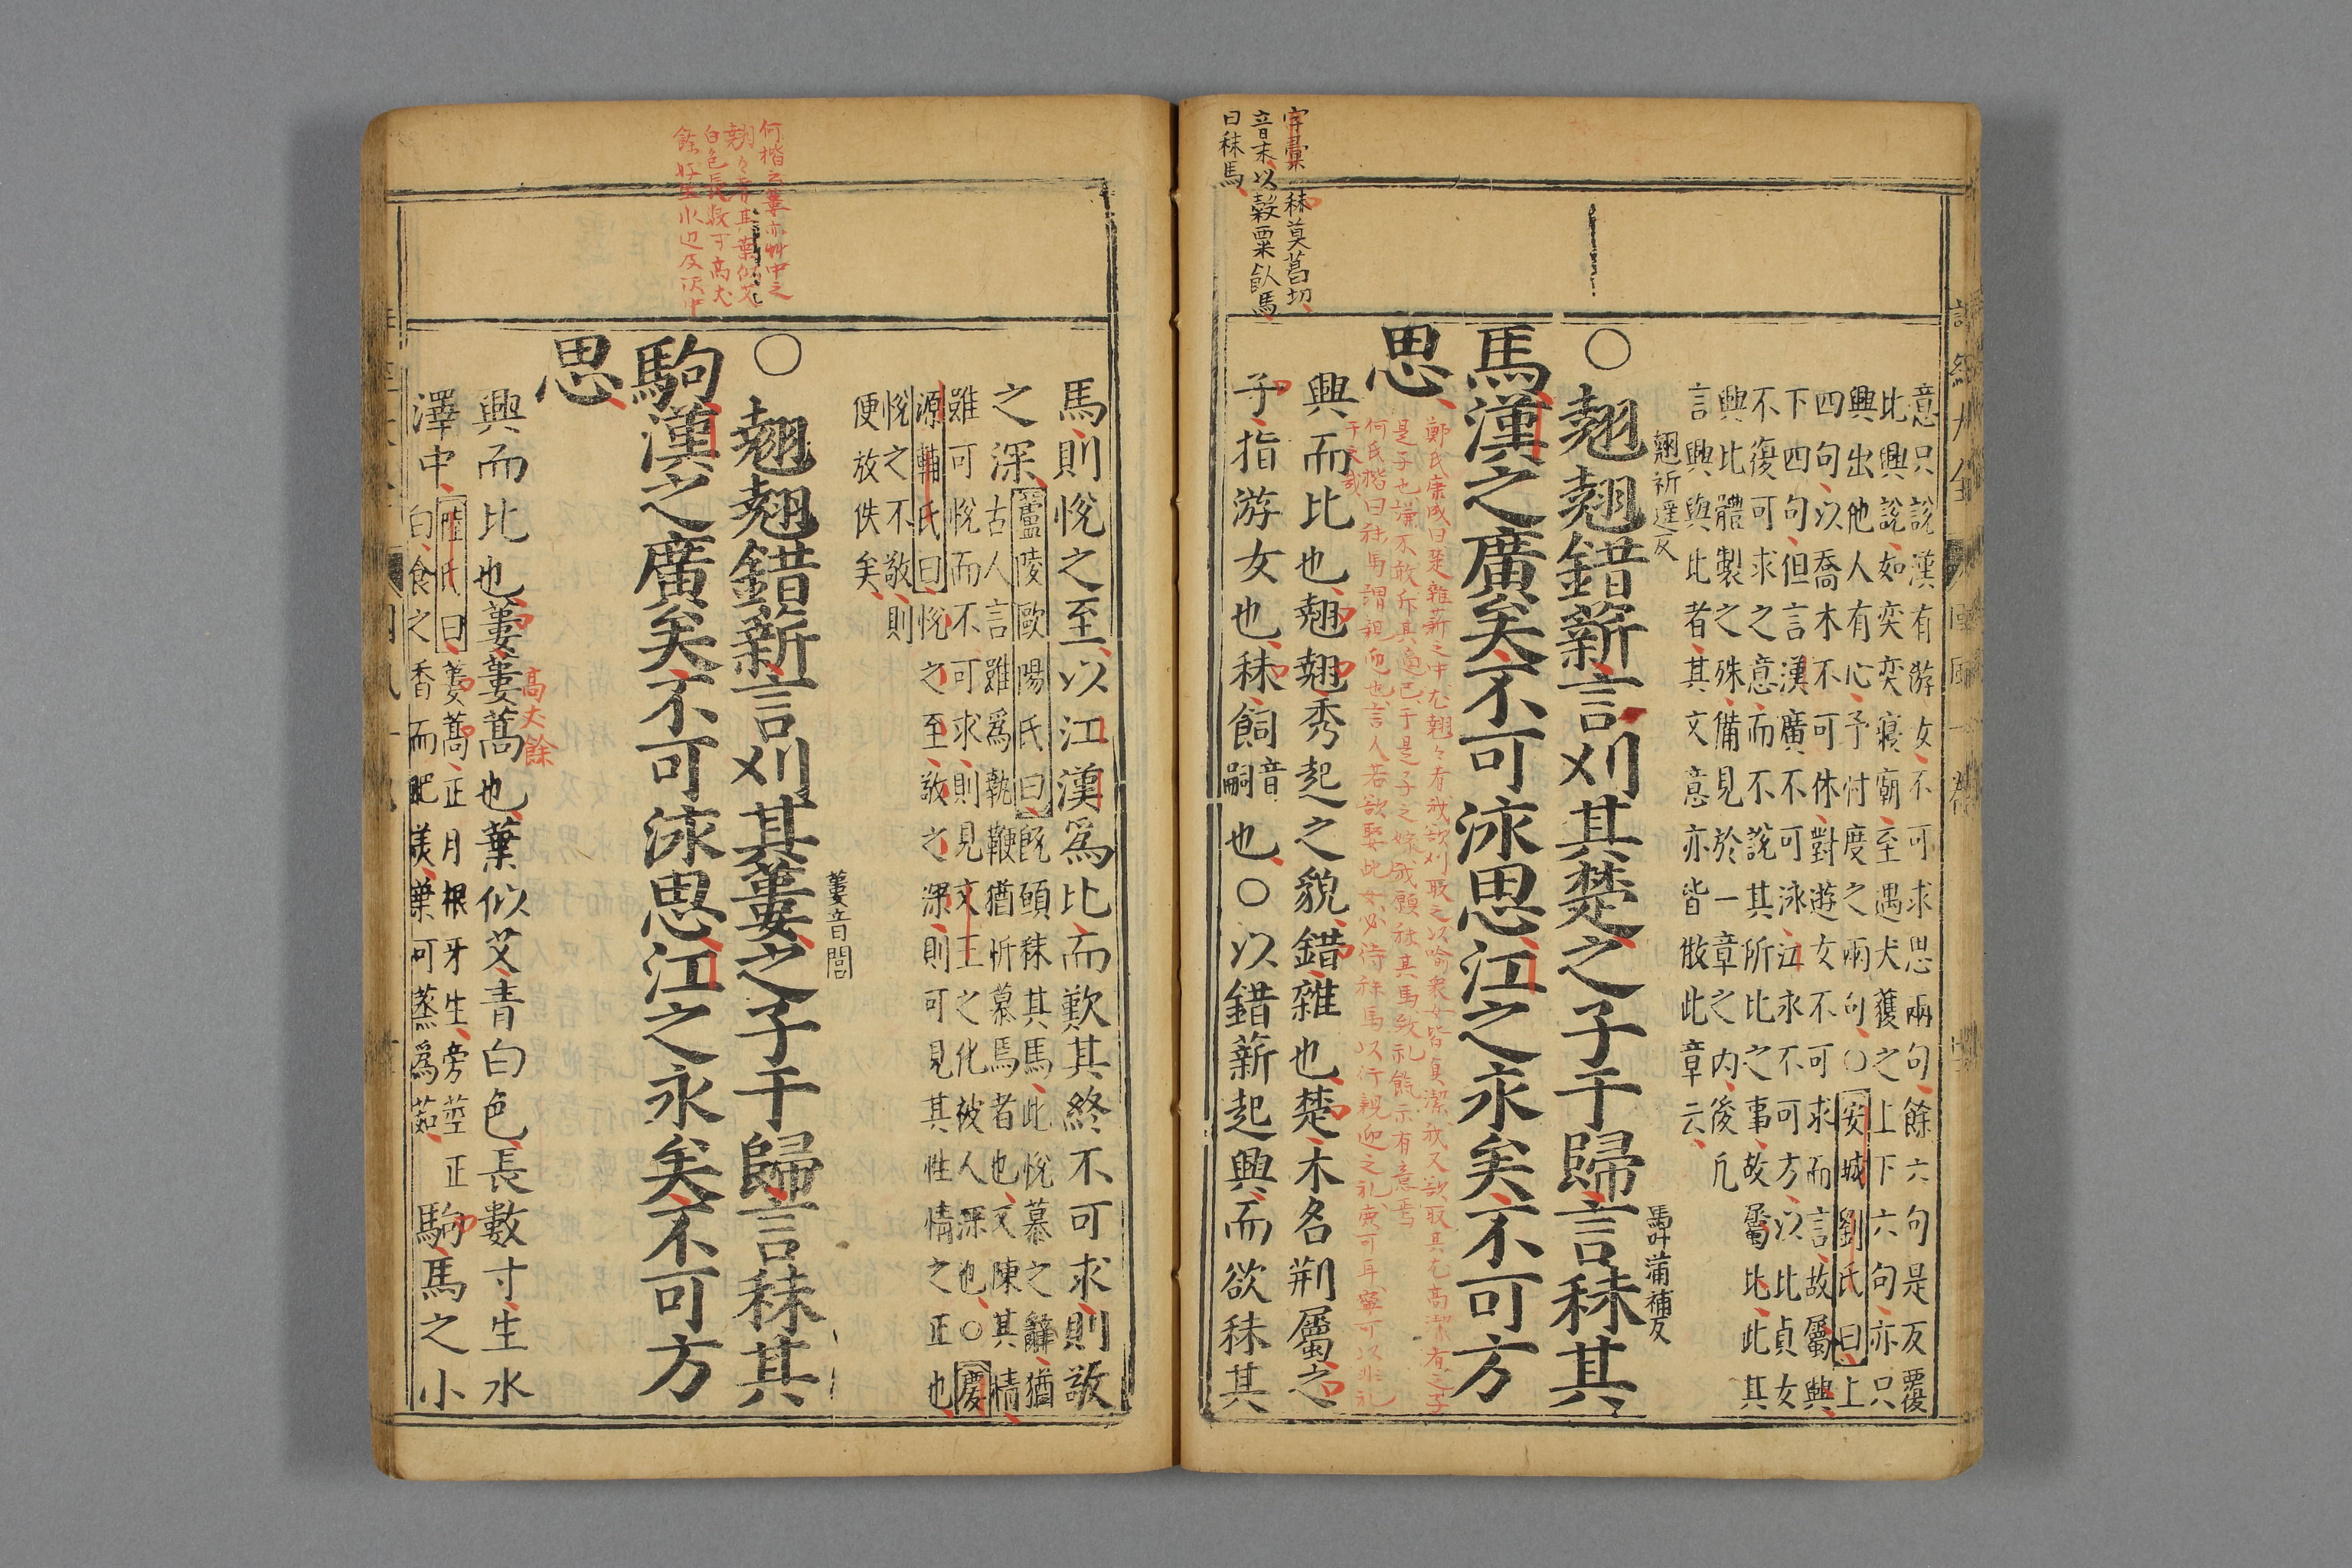 字彙秣莫葛切
音末以穀粟飤馬
曰秣馬
意只說漢有游女不可求思兩句餘六句是反覆
比興說如奕奕寢廟至遇犬獲之上下六句亦只
興出他人有心予忖度之兩句○安城劉氏曰上
四句以喬木不可休對遊女不可求而言故屬興
下四句但言漢廣不可泳江永不可方以比貞女
不復可求之意而不說其所比之事故屬比此其
興比體製之殊備見於一章之内後凡
言興與比者其文意亦皆倣此章云
翹祈遥反
馬叶蒲補反
○翹翹錯薪言刈其楚之子于歸言秣其
馬漢之廣矣不可泳思江之永矣不可方
思
鄭氏康成曰楚雜薪之中尤翹々者我欲刈取之以喻衆女皆貞潔我又欲取其尤高潔者之子
是子也謙不敢斥其適已于是子之嫁我願秣其馬致礼餼示有意焉
何氏楷曰秣馬謂親迎也言人若欲娶此女必待秣馬以行親迎之礼庶可耳寧可以非礼
干之哉
興而比也翹翹秀起之貌錯雜也楚木名荆屬之
子指游女也秣飼音嗣也○以錯薪起興而欲秣其
馬則悅之至以江漢爲比而歎其終不可求則敬
之深廬陵歐陽氏曰旣願秣其馬此悅慕之辭猶
古人言雖爲執鞭猶忻慕焉者也文陳其情
雖可悅而不可求則見文王之化被人深也○慶
源輔氏曰悅之至敬之深則可見其性情之正也
悅之不敬則
便放佚矣
蔞音閭
何楷云蔞亦艸中之
翹々者其葉似艾
白色長數寸高丈
餘好生水边及沢中
○翹翹錯薪言刈其蔞之子于歸言秣其
駒漢之廣矣不可泳思江之永矣不可方
思
高丈餘
興而比也蔞蔞蒿也葉似艾青白色長數寸生水
澤中陸氏曰蔞蒿正月根牙生旁莖正
白食之香而肥美葉可蒸爲茹
駒馬之小